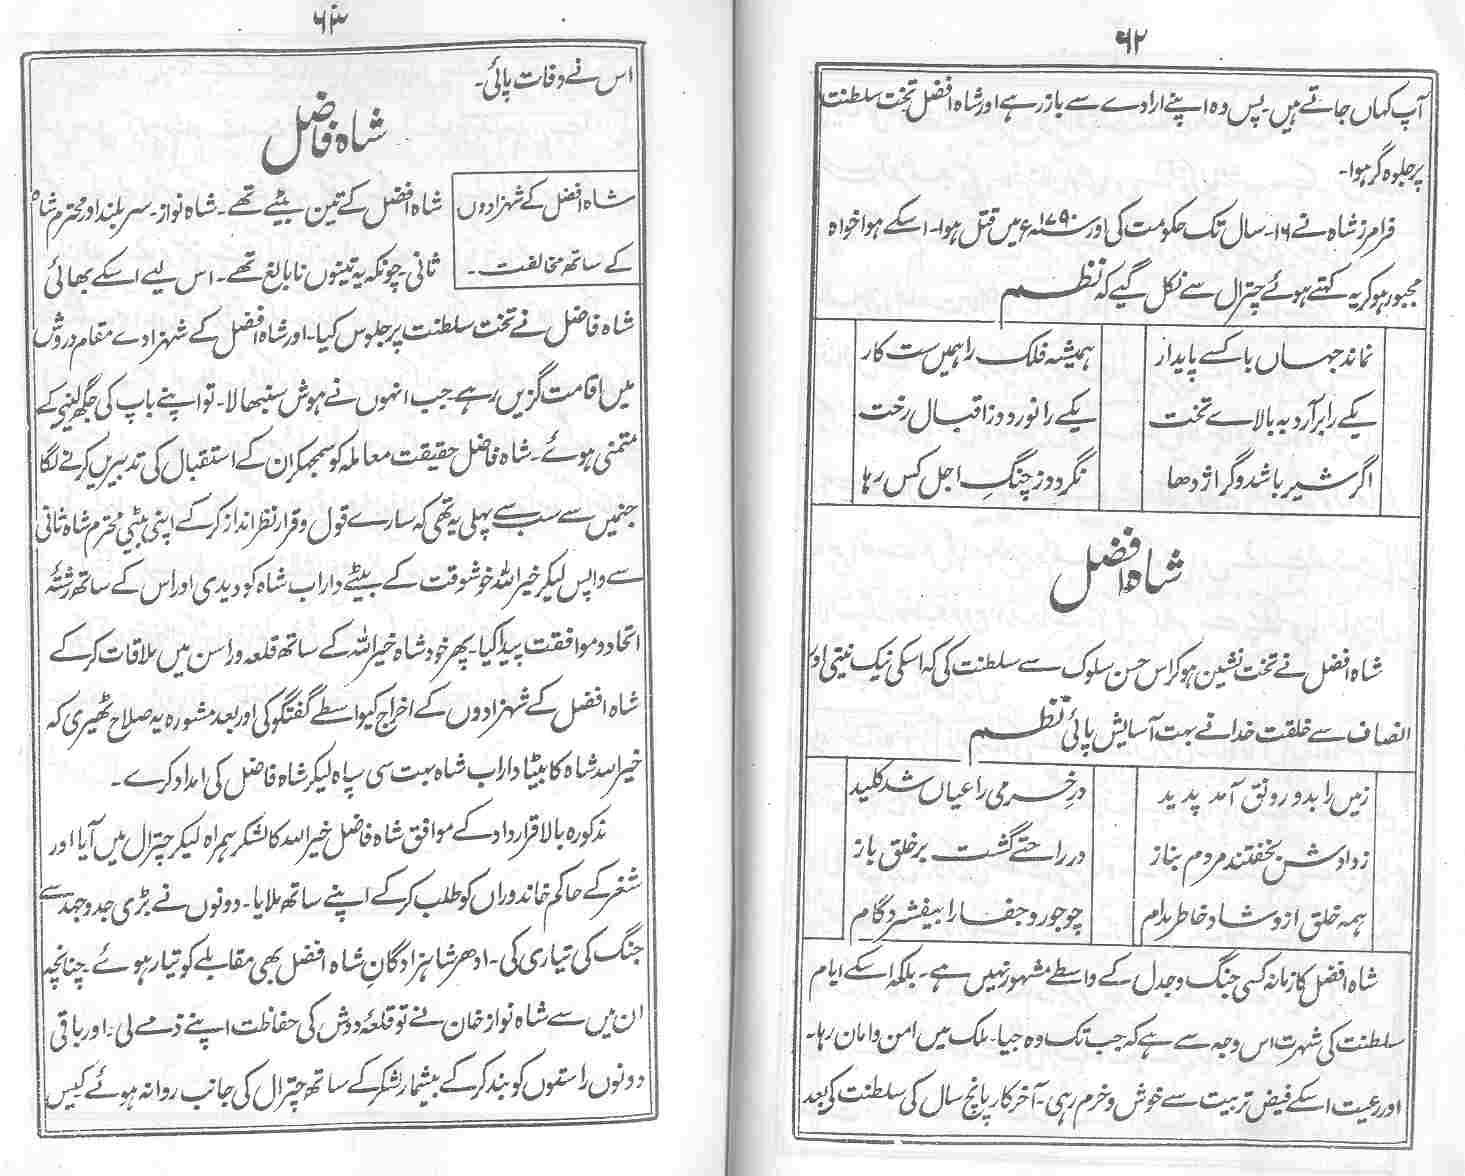 ۶۲
آپ کہاں جاتے ہیں۔ پس وہ اپنے ارادے سے باز رہے اور شاہ افضل تخت سلطنت
پر جلوہ گر ہوا۔
فرامرز شاہ نے ۱۶۔ سال تک حکومت کی اور سنہ ۱۷۹۰ء میں قتل ہوا۔ اسکے ہواخواہ
مجبور ہو کر یہ کہتے ہوئے چترال سے نکل گیے کہ نظم
نماند جہاں با کسے پایدار ہمیشہ فلک را ہمیں ست کار
یکے را بر آرد بہ بالاے تخت یکے را نوردد ز اقبال رخت
اگر شیر باشد و گر اژدھا نگردد ز چنگِ اجل کس رہا
شاہ افضل
شاہ افضل نے تخت نشین ہو کر اس حسن سلوک سے سلطنت کی کہ اسکی نیک نیتی اور
انصاف سے خلقت خدا نے بہت آسایش پائی نظم
زمیں را بدو رونق آمد پدید در خرمی را عیاں شد کلید
ز دادش بخفتند مردم بناز در راحتے گشت بر خلق باز
ہمہ خلق ازو شاد خاطر مدام چو جور و جفا را بیفشرد گام
شاہ افضل کا زمانہ کسی جنگ و جدل کے واسطے مشہور نہیں ہے۔ بلکہ اسکے ایام
سلطنت کی شہرت اس وجہ سے ہے کہ جب تک وہ جیا۔ ملک میں امن و امان رہا۔
اور رعیت اسکے فیض تربیت سے خوش و خرم رہی۔ آخر کار پانچ سال کی سلطنت کی بعد
۶۳
اس نے وفات پائی۔
شاہ فاضل
شاہ افضل کے شہزادوں
کے ساتھ مخالفت۔
شاہ افضل کے تین بیٹے تھے۔ شاہ نواز۔ سربلند اور محترم شاہ
ثانی۔ چونکہ یہ تینوں نابالغ تھے۔ اس لیے اسکے بھائی
شاہ فاضل نے تخت سلطنت پر جلوس کیا۔ اور شاہ افضل کے شہزادے مقام دروش
میں اقامت گزیں رہے۔ جب انہوں نے ہوش سنبھالا۔ تو اپنے باپ کی جگھ لینے کے
متمنی ہوئے۔ شاہ فاضل حقیقت معاملہ کو سمجھکر ان کے استقبال کی تدبیریں کرنے لگا
جنمیں سے سب سے پہلی یہ تھی کہ سارے قول و قرار نظر انداز کر کے اپنی بیٹی محترم شاہ ثانی
سے واپس لیکر خیر اللہ خوشوقت کے بیٹے داراب شاہ کو دیدی اور اس کے ساتھ رشتۂ
اتحاد و موافقت پیدا کیا۔ پھر خود شاہ خیر اللہ کے ساتھ قلعہ وراسن میں ملاقات کر کے
شاہ افضل کے شہزادوں کے اخراج کیواسطے گفتگو کی اور بعد مشورہ یہ صلاح ٹھیری کہ
خیر اللہ شاہ کا بیٹا داراب شاہ بہت سی سپاہ لیکر شاہ فاضل کی امداد کرے۔
مذکورہ بالا قرارداد کے موافق شاہ فاضل خیر اللہ کا لشکر ہمراہ لیکر چترال میں آیا اور
شغر کے حاکم خاندوراں کو طلب کر کے اپنے ساتھ ملایا۔ دونوں نے بڑی جد و جہد سے
جنگ کی تیاری کی۔ ادھر شاہزادگانِ شاہ افضل بھی مقابلے کو تیار ہوئے چنانچہ
ان میں سے شاہ نواز خان نے تو قلعۂ دروش کی حفاظت اپنے ذمے لی۔ اور باقی
دونوں راستوں کو بند کر کے بیشمار لشکر کے ساتھ چترال کی جانب روانہ ہوئے کیس